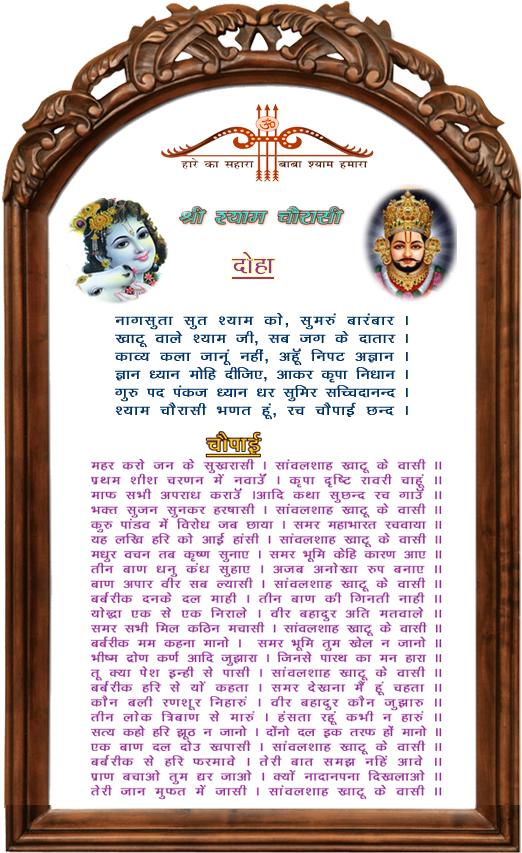 ॐ
हारे का सहारा बाबा श्याम हमारा
श्री श्याम चौरासी
दोहा
नागसुता सुत श्याम को, सुमरुं बारंबार ।
खाटू वाले श्याम जी, सब जग के दातार ।
काव्य कला जानूं नहीं, अहूँ निपट अज्ञान ।
ज्ञान ध्यान मोहि दीजिए, आकर कृपा निधान ।
गुरु पद पंकज ध्यान धर सुमिर सच्चिदानन्द ।
श्याम चौरासी भणत हूं, रच चौपाई छन्द ।
चौपाई
महर करो जन के सुखरासी । सांवलशाह खाटू के वासी ॥
प्रथम शीश चरणन में नवाउँ । कृपा दृष्टि रावरी चाहूं ॥
माफ सभी अपराध कराउँ ।आदि कथा सुछन्द रच गाउँ ॥
भक्त सुजन सुनकर हरषासी । सांवलशाह खाटू के वासी ॥
कुरु पांडव में विरोध जब छाया । समर महाभारत रचवाया ॥
यह लखि हरि को आई हांसी । सांवलशाह खाटू के वासी ॥
मधुर वचन तब कृष्ण सुनाए । समर भूमि केहि कारण आए ॥
तीन बाण धनु कंध सुहाए । अजब अनोखा रुप बनाए ॥
बाण अपार वीर सब ल्यासी । सांवलशाह खाटू के वासी ॥
बर्बरीक दनके दल माही । तीन बाण की गिनती नाही ॥
योद्धा एक से एक निराले । वीर बहादुर अति मतवाले ॥
समर सभी मिल कठिन मचासी । सांवलशाह खाटू के वासी ॥
बर्बरीक मम कहना मानो । समर भूमि तुम खेल न जानो ॥
भीष्म द्रोण कर्ण आदि जुझारा । जिनसे पारथ का मन हारा ॥
तू क्या पेश इन्ही से पासी । सांवलशाह खाटू के वासी ॥
बर्बरीक हरि से यों कहता । समर देखना मैं हूं चहता ॥
कौन बली रणशूर निहारुं । वीर बहादुर कौन जुझारु ॥
तीन लोक त्रिबाण से मारुं । हंसता रहूं कभी न हारुं ॥
सत्य कहो हरि झूठ न जानो । दोंनो दल इक तरफ हों मानो ॥
एक बाण दल दोउ खपासी । सांवलशाह खाटू के वासी ॥
बर्बरीक से हरि फरमावे । तेरी बात समझ नहिं आवे ॥
प्राण बचाओ तुम घर जाओ । क्यों नादानपना दिखलाओ ॥
तेरी जान मुफत में जासी । सांवलशाह खाटू के वासी ॥